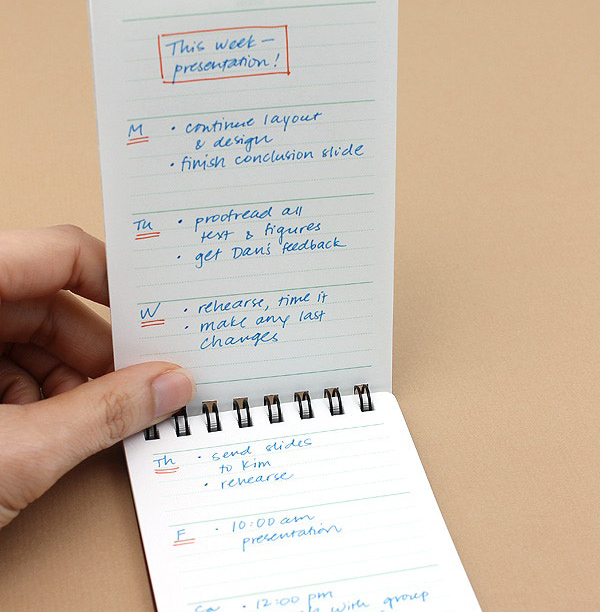 This week –
presentation!
M • continue layout
& design
• finish conclusion slide
Tu • proofread all
text & figures
• get Dan's feedback
W • rehearse, time it
• make any last
changes
Th • send slides
to Kim
• rehearse
F • 10:00 am
presentation
Sa • 12:00 pm
with group